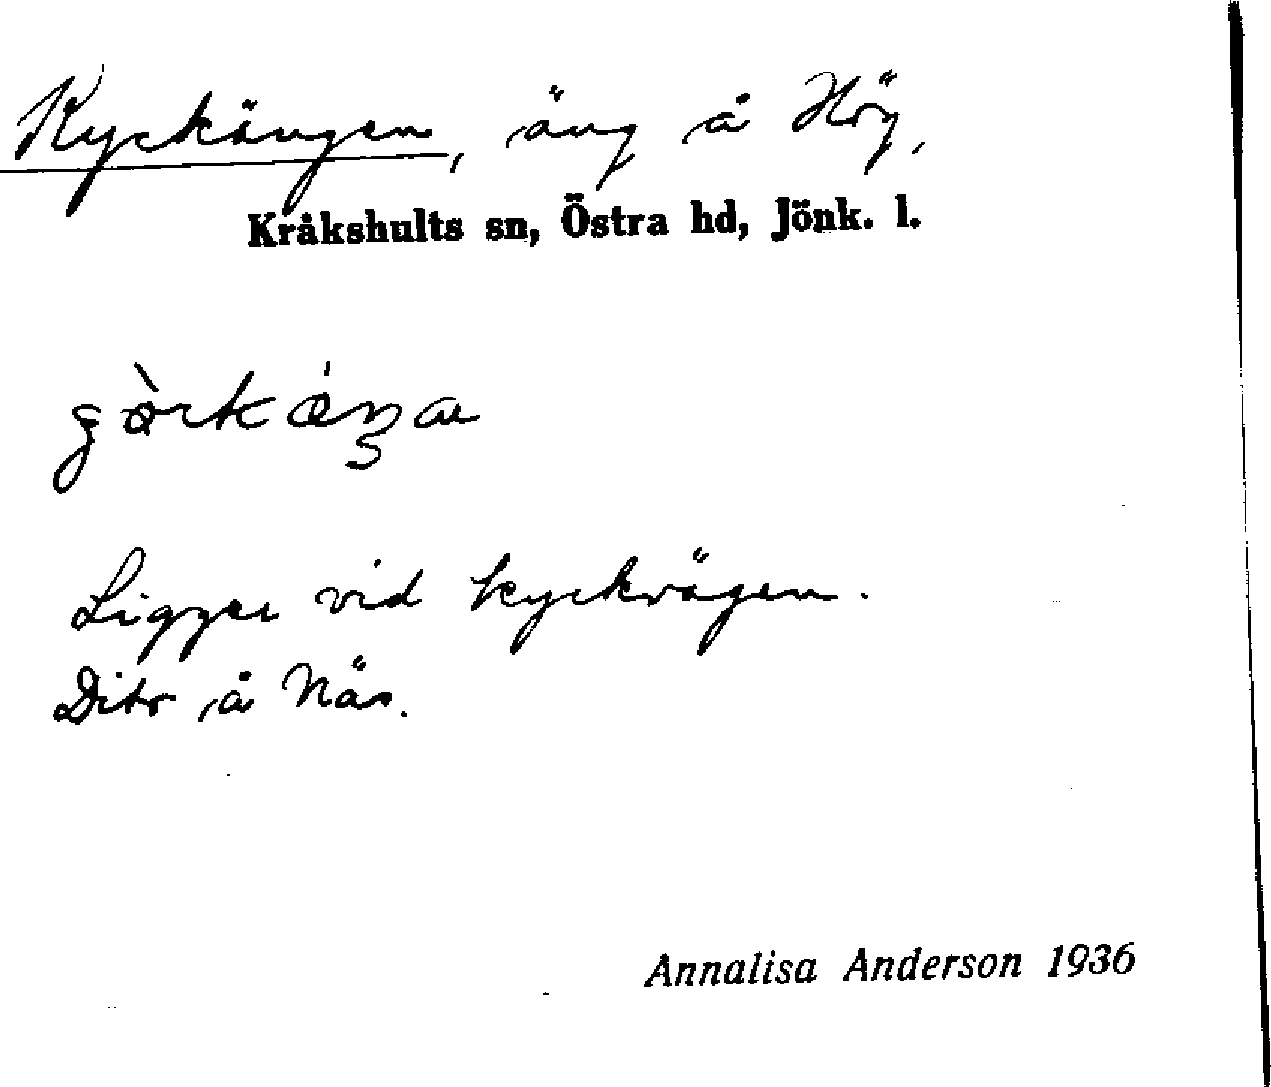 Kyrkängen, äng å Hög,
Kråkshults sn, Östra hd, Jönk. l.
Ligger vid kyrkvägen.
Dito å Näs.
Annalisa Anderson 1936